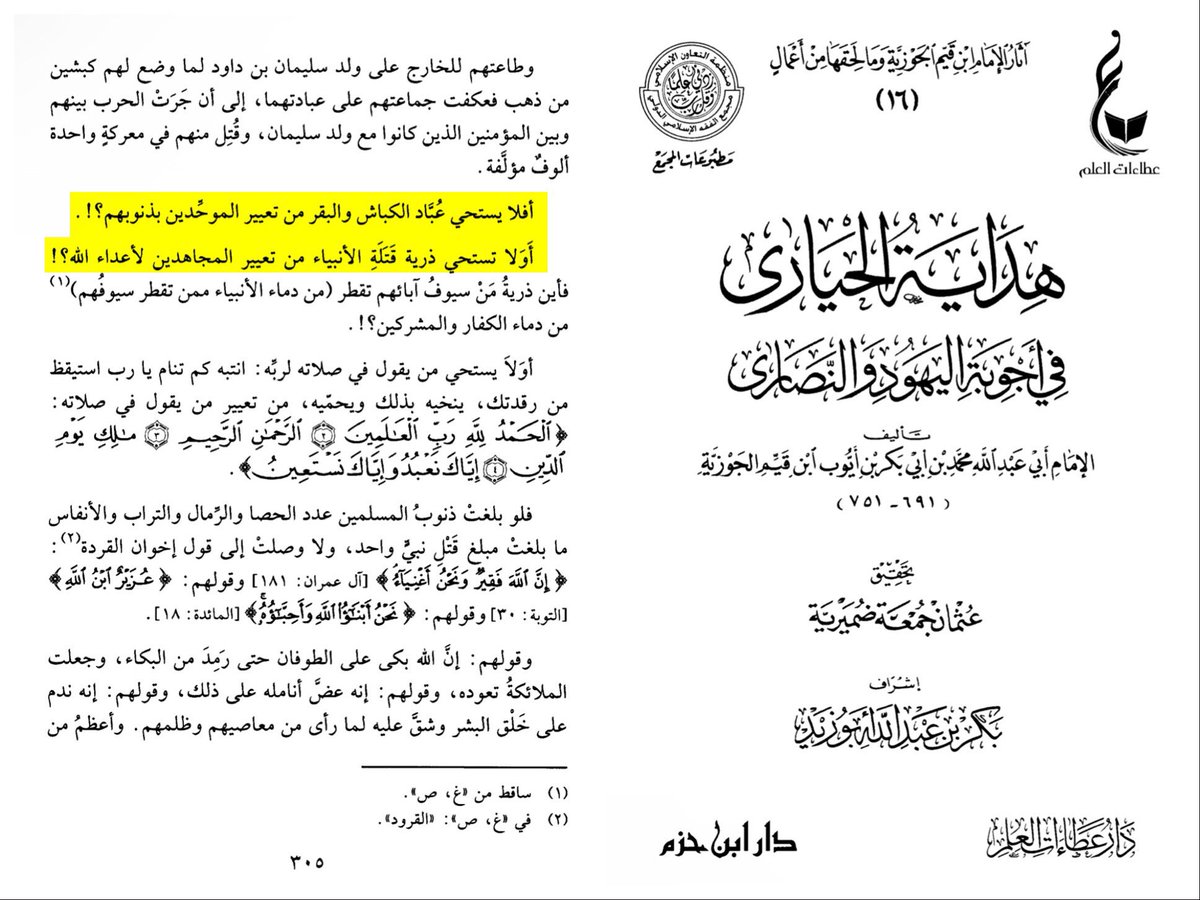 آثَارُ الإِمَامِ ابْنِ قَيِّمِ الجَوْزِيَّةِ وَمَا لَحِقَهَا مِنْ أَعْمَالٍ
(١٦)
منظمة التعاون الإسلامي
رب زدني علما
مجمع الفقه الإسلامي الدولي
مَطْبُوعَات المَجْمَع
عطاءات العلم
هِدَايَةُ الحَيَارَى
فِي أَجْوِبَةِ اليَهُودِ وَالنَّصَارَى
تَأليف
الإِمَامِ أَبِي عَبْدِ اللَّهِ مُحَمَّدِ بْنِ أَبِي بَكْرِ بْنِ أَيُّوب ابْنِ قَيِّمِ الجَوْزِيَّةِ
(٦٩١ - ٧٥١)
تَحْقِيق
عُثْمَان جُمعَة ضُمَيْرِيَّة
إشْرَاف
بَكْر بْن عَبْدِ اللَّهِ أَبُو زَيْد
دَارُ عَطَاءَاتِ العِلْمِ
دار ابن حزم
وطاعتهم للخارج على ولد سليمان بن داود لما وضع لهم كبشين
من ذهب فعكفت جماعتهم على عبادتهما، إلى أن جَرَتْ الحرب بينهم
وبين المؤمنين الذين كانوا مع ولد سليمان، وقُتِل منهم في معركةٍ واحدة
ألوفٌ مؤلَّفة.
أفلا يستحي عُبَّاد الكباش والبقر من تعيير الموحِّدين بذنوبهم؟!.
أَوَلا تستحي ذرية قَتَلَةِ الأنبياء من تعيير المجاهدين لأعداء الله؟!
فأين ذريةُ مَنْ سيوفُ آبائهم تقطر (من دماء الأنبياء ممن تقطر سيوفُهم)(١)
من دماء الكفار والمشركين؟!.
أوَلاَ يستحي من يقول في صلاته لربِّه: انتبه كم تنام يا رب استيقظ
من رقدتك، ينخيه بذلك ويحمّيه، من تعيير من يقول في صلاته:
﴿ٱلْحَمْدُ لِلَّهِ رَبِّ ٱلْعَٰلَمِينَ ۝٢ ٱلرَّحْمَٰنِ ٱلرَّحِيمِ ۝٣ مَٰلِكِ يَوْمِ
ٱلدِّينِ ۝٤ إِيَّاكَ نَعْبُدُ وَإِيَّاكَ نَسْتَعِينُ﴾.
فلو بلغتْ ذنوبُ المسلمين عدد الحصا والرِّمال والتراب والأنفاس
ما بلغتْ مبلغ قَتْلِ نبيٍّ واحد، ولا وصلتْ إلى قول إخوان القردة(٢):
﴿إِنَّ ٱللَّهَ فَقِيرٌ وَنَحْنُ أَغْنِيَآءُ﴾ [آل عمران: ١٨١] وقولهم: ﴿عُزَيْرٌ ٱبْنُ ٱللَّهِ﴾
[التوبة: ٣٠] وقولهم: ﴿نَحْنُ أَبْنَٰٓؤُا۟ ٱللَّهِ وَأَحِبَّٰٓؤُهُۥ﴾ [المائدة: ١٨].
وقولهم: إنَّ الله بكى على الطوفان حتى رمِدَ من البكاء، وجعلت
الملائكةُ تعوده، وقولهم: إنه عضَّ أنامله على ذلك، وقولهم: إنه ندم
على خَلْق البشر وشقَّ عليه لما رأى من معاصيهم وظلمهم. وأعظمُ من
(١) ساقط من «غ، ص».
(٢) في «غ، ص»: «القرود».
٣٠٥